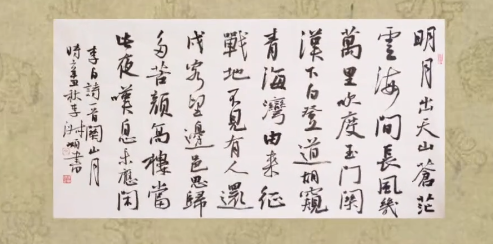 明月出天山蒼茫
雲海間長風幾
萬里吹度玉門関
漢下白登道胡窺
青海灣由来征
戰地不見有人還
戍客望邊邑思歸
多苦顔高樓當
此夜嘆息未應閑
李白詩一首關山月
時孟秋李書